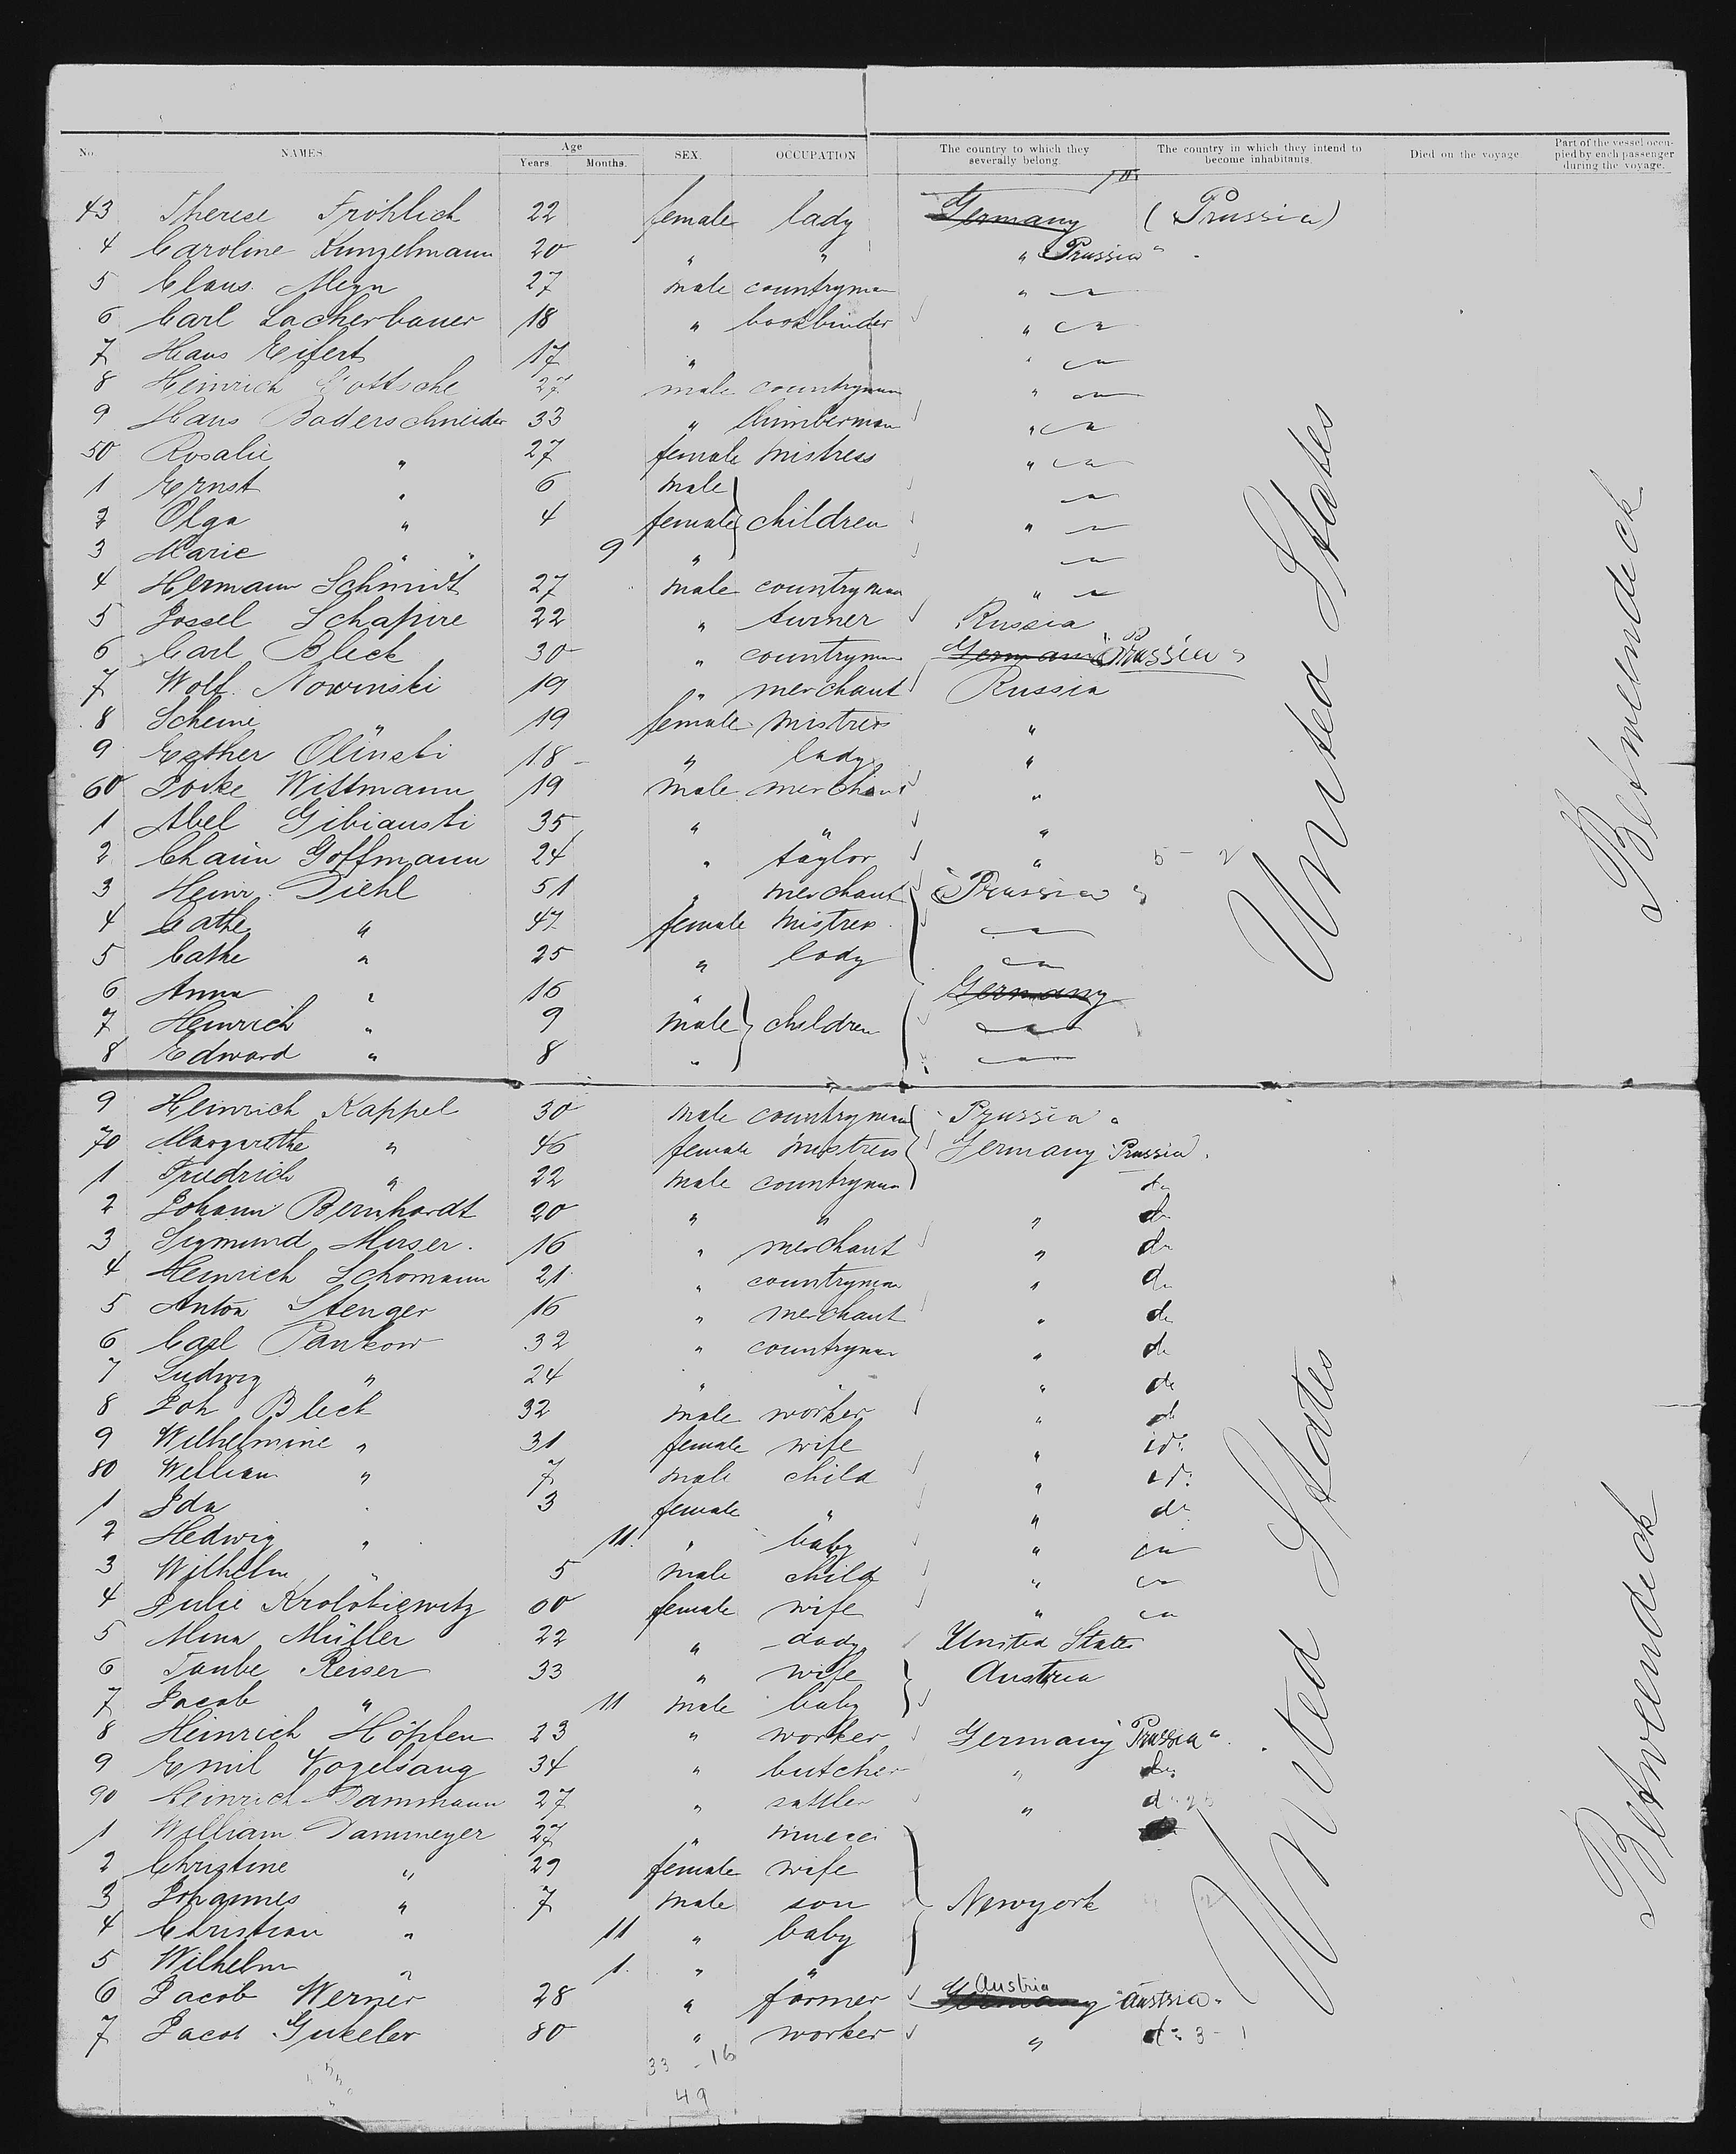 No. NAMES. Age SEX. OCCUPATION The country to which they severally belong. The country in which they intend to become inhabitants. Died on the voyage Part of the vessel occupied by each passenger during the voyage.
Years. Months.
43 Therese Fröhlich 22 female lady Germany (Prussia)
4 Caroline Kunzelmann 20 " " " Prussia "
5 Claus Meyn 27 male countryman " "
6 Carl Lacherbauer 18 " bookbinder " "
7 Hans Eifert 17 " " "
8 Heinrich Gottsche 27 male countryman " "
9 Hans Baderschneider 33 " limberman " "
50 Rosalie " 27 female mistress " "
1 Ernst " 6 male "
2 Olga " 4 female children " "
3 Marie " " 9 " "
4 Hermann Schmidt 27 male countryman " "
5 Jossel Schapire 22 " turner Russia
6 Carl Bleck 30 " countryman Germany Prussia "
7 Wolf Nowinski 19 " merchant Russia
8 Scheine " 19 female mistress "
9 Esther Olinski 18 " lady "
60 Joike Wittmann 19 male merchant "
1 Abel Gibianski 35 " " "
2 Chaim Goffmann 24 " taylor " 5 - 2
3 Heinr. Diehl 51 " merchant Prussia "
4 Cathe " 47 female mistress "
5 Cathe " 25 " lady "
6 Anna " 16 " Germany
7 Heinrich " 9 male children "
8 Edward " 8 " "
United States
Betweendeck
9 Heinrich Kappel 30 male countryman Prussia "
70 Margarethe " 46 female mistress Germany Prussia
1 Friedrich " 22 male countryman do
2 Johann Bernhardt 20 " " " do
3 Sigmund Moser 16 " merchant " do
4 Heinrich Schomann 21 " countryman " do
5 Anton Stenger 16 " merchant " do
6 Carl Pankow 32 " countryman " do
7 Ludwig " 24 " " " do
8 Joh Bleck 32 male worker " do
9 Wilhelmine " 31 female wife " do
80 William " 7 male child " do
1 Ida " 3 female " " do
2 Hedwig " 11 " baby " "
3 Wilhelm " 5 male child " "
4 Julie Krolokiewitz 60 female wife " "
5 Mina Müller 22 " dady United States
6 Taube Reiser 33 " wife Austria
7 Jacob " 11 male baby
8 Heinrich Höpfen 23 " worker Germany Prussia "
9 Emil Vogelsang 34 " butcher " do
90 Heinrich Dammann 27 " sattler " do
1 William Dammeyer 27 "
2 Christine " 29 female wife
3 Johannes " 7 male son Newyork
4 Christian " 11 " baby
5 Wilhelm " 1 " "
6 Jacob Werner 28 " farmer Germany Austria "Austria"
7 Jacob Gukeler 30 " worker " do 3 - 1
United States
Betweendeck
33 - 16
49